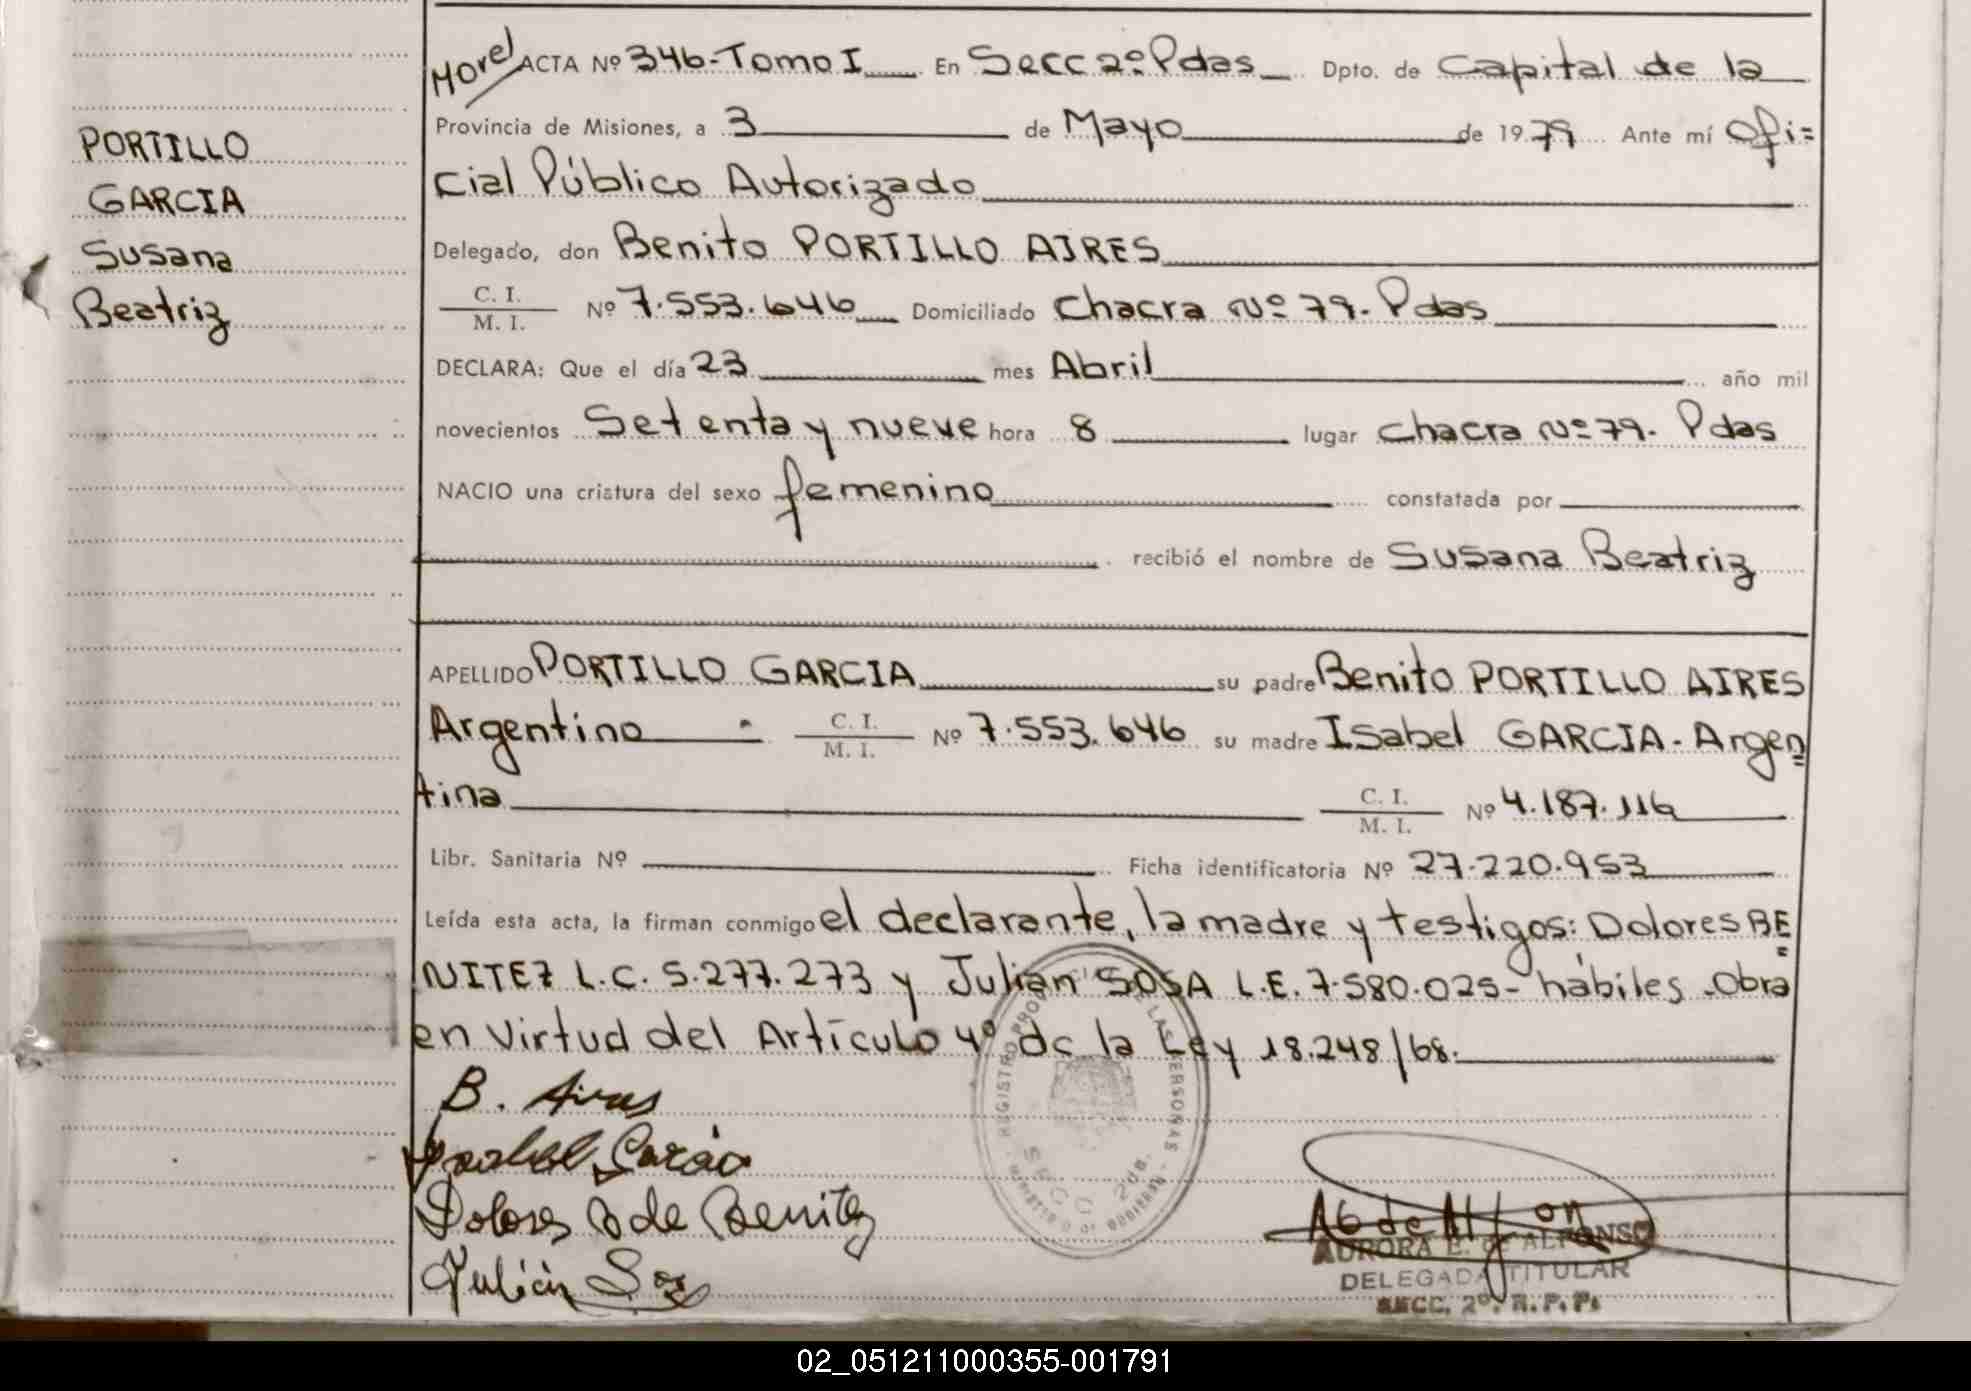 PORTILLO
GARCIA
Susana
Beatriz
Morel ACTA Nº 346-Tomo I En Secc 2º Pdas Dpto. de Capital de la
Provincia de Misiones, a 3 de Mayo de 1979 Ante mí Ofi=
cial Público Autorizado
Delegado, don Benito PORTILLO AIRES
C. I. / M. I. Nº 7.553.646 Domiciliado Chacra Nº 79. Pdas
DECLARA: Que el día 23 mes Abril año mil
novecientos Setenta y nueve hora 8 lugar Chacra Nº 79. Pdas
NACIO una criatura del sexo femenino constatada por
recibió el nombre de Susana Beatriz
APELLIDO PORTILLO GARCIA su padre Benito PORTILLO AIRES
Argentino C. I. / M. I. Nº 7.553.646 su madre Isabel GARCIA - Argen=
tina C. I. / M. I. Nº 4.187.116
Libr. Sanitaria Nº Ficha identificatoria Nº 27.220.953
Leída esta acta, la firman conmigo el declarante, la madre y testigos: Dolores BE=
NITEZ L.C. 5.277.273 y Julián SOSA L.E. 7.580.025- hábiles -Obra
en Virtud del Artículo 4º de la Ley 18.248/68.
B. Aires
Isabel Garcia
Dolores B de Benitez
Julián Sosa
LAS PERSONAS
SECC 2da.
AURORA E. de ALFONSO
DELEGADA TITULAR
SECC. 2º. R. P. P.
02_051211000355-001791